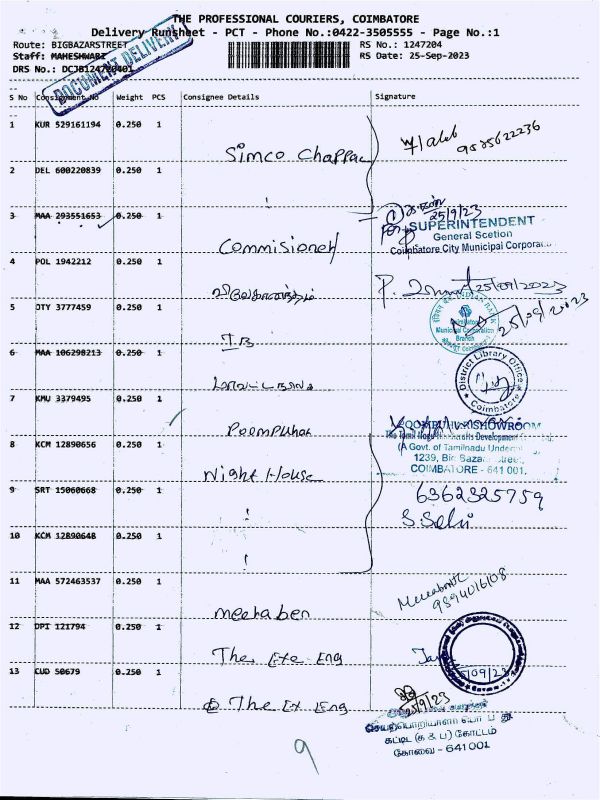 THE PROFESSIONAL COURIERS, COIMBATORE
Delivery Runsheet - PCT - Phone No.:0422-3505555 - Page No.:1
Route: BIGBAZARSTREET
RS No.: 1247204
Staff: MAHESHWARI
RS Date: 25-Sep-2023
DRS No.:
DOCUMENT DELIVERY
S No Consignment No Weight PCS Consignee Details Signature
1 KUR 529161194 0.250 1
Simco Chappal
9585622236
2 DEL 600220839 0.250 1
3 MAA 293551653 0.250 1
Commisioner
25/9/23
SUPERINTENDENT
General Scetion
Coimbatore City Municipal Corporat
4 POL 1942212 0.250 1
25/09/2023
5 JTY 3777459 0.250 1
INDIAN BANK
Coimbatore
Municipal Corporation
Branch
25/09/2023
6 MAA 106298213 0.250 1
District Library Office
Coimbatore
7 KMU 3379495 0.250 1
Poompuhar
POOMPUHAR SHOWROOM
(A Govt. of Tamilnadu
1239, Big Bazaar Street,
COIMBATORE - 641 001.
8 KCM 12890656 0.250 1
Night House
9 SRT 15060668 0.250 1
6362325759
S Selvi
10 KCM 12890648 0.250 1
11 MAA 572463537 0.250 1
meenaben
9894016108
12 DPI 121794 0.250 1
The Exe Eng
/09/23
13 CUD 50679 0.250 1
The Ex Eng
25/9/23
கட்டிட (க & ப) கோட்டம்
கோவை - 641 001
9